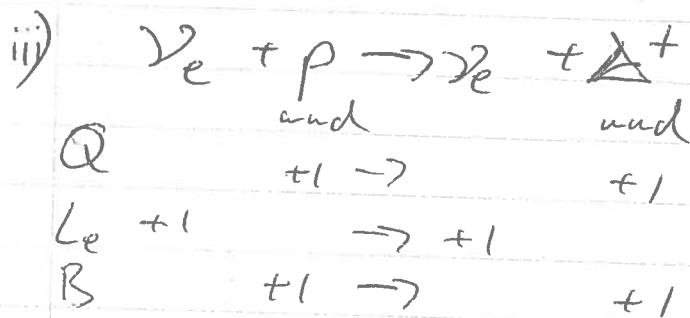 iii) νe + p → νe + Δ+
uud uud
Q +1 → +1
Le +1 → +1
B +1 → +1